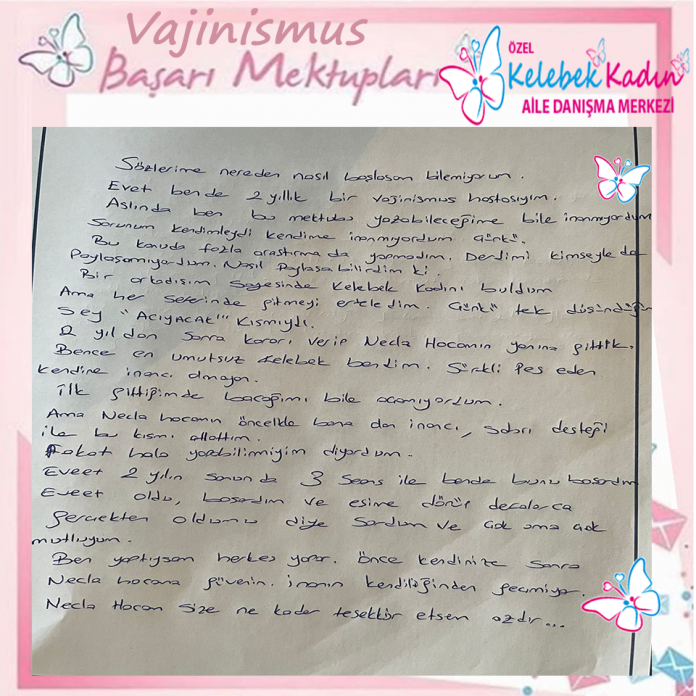 Vajinismus
Başarı Mektupları
ÖZEL
Kelebek Kadın
AİLE DANIŞMA MERKEZİ
Sözlerime nereden nasıl başlasam bilemiyorum.
Evet bende 2 yıllık bir vajinismus hastasıyım.
Aslında ben bu mektubu yazabileceğime bile inanmıyordum
Sorunum kendimleydi kendime inanmıyordum çünkü.
Bu konuda fazla araştırma da yapmadım. Derdimi kimseyle de
paylaşamıyordum. Nasıl paylaşabilirdim ki.
Bir arkadaşım sayesinde Kelebek Kadını buldum
Ama her seferinde gitmeyi erteledim. Çünkü tek düşündüğüm
şey "ACIYACAK" kısmıydı.
2 yıldan sonra kararı verip Necla Hocamın yanına gittik.
Bence en umutsuz kelebek bendim. Sürekli pes eden
kendine inancı olmayan.
İlk gittiğimde bacağımı bile açamıyordum.
Ama Necla hocamın öncelikle bana olan inancı, sabrı desteği
ile bu kısmı atlattım.
Fakat hala yapabilirmiyim diyordum.
Eveet 2 yılın sonunda 3 seans ile bende bunu başardım
Eveet oldu, başardım ve eşime dönüp defalarca
gerçekten oldumu diye sordum ve çok ama çok
mutluyum.
Ben yaptıysam herkes yapar. Önce kendinize sonra
Necla hocama güvenin. İnanın kendiliğinden geçmiyor.
Necla Hocam size ne kadar teşekkür etsem azdır...